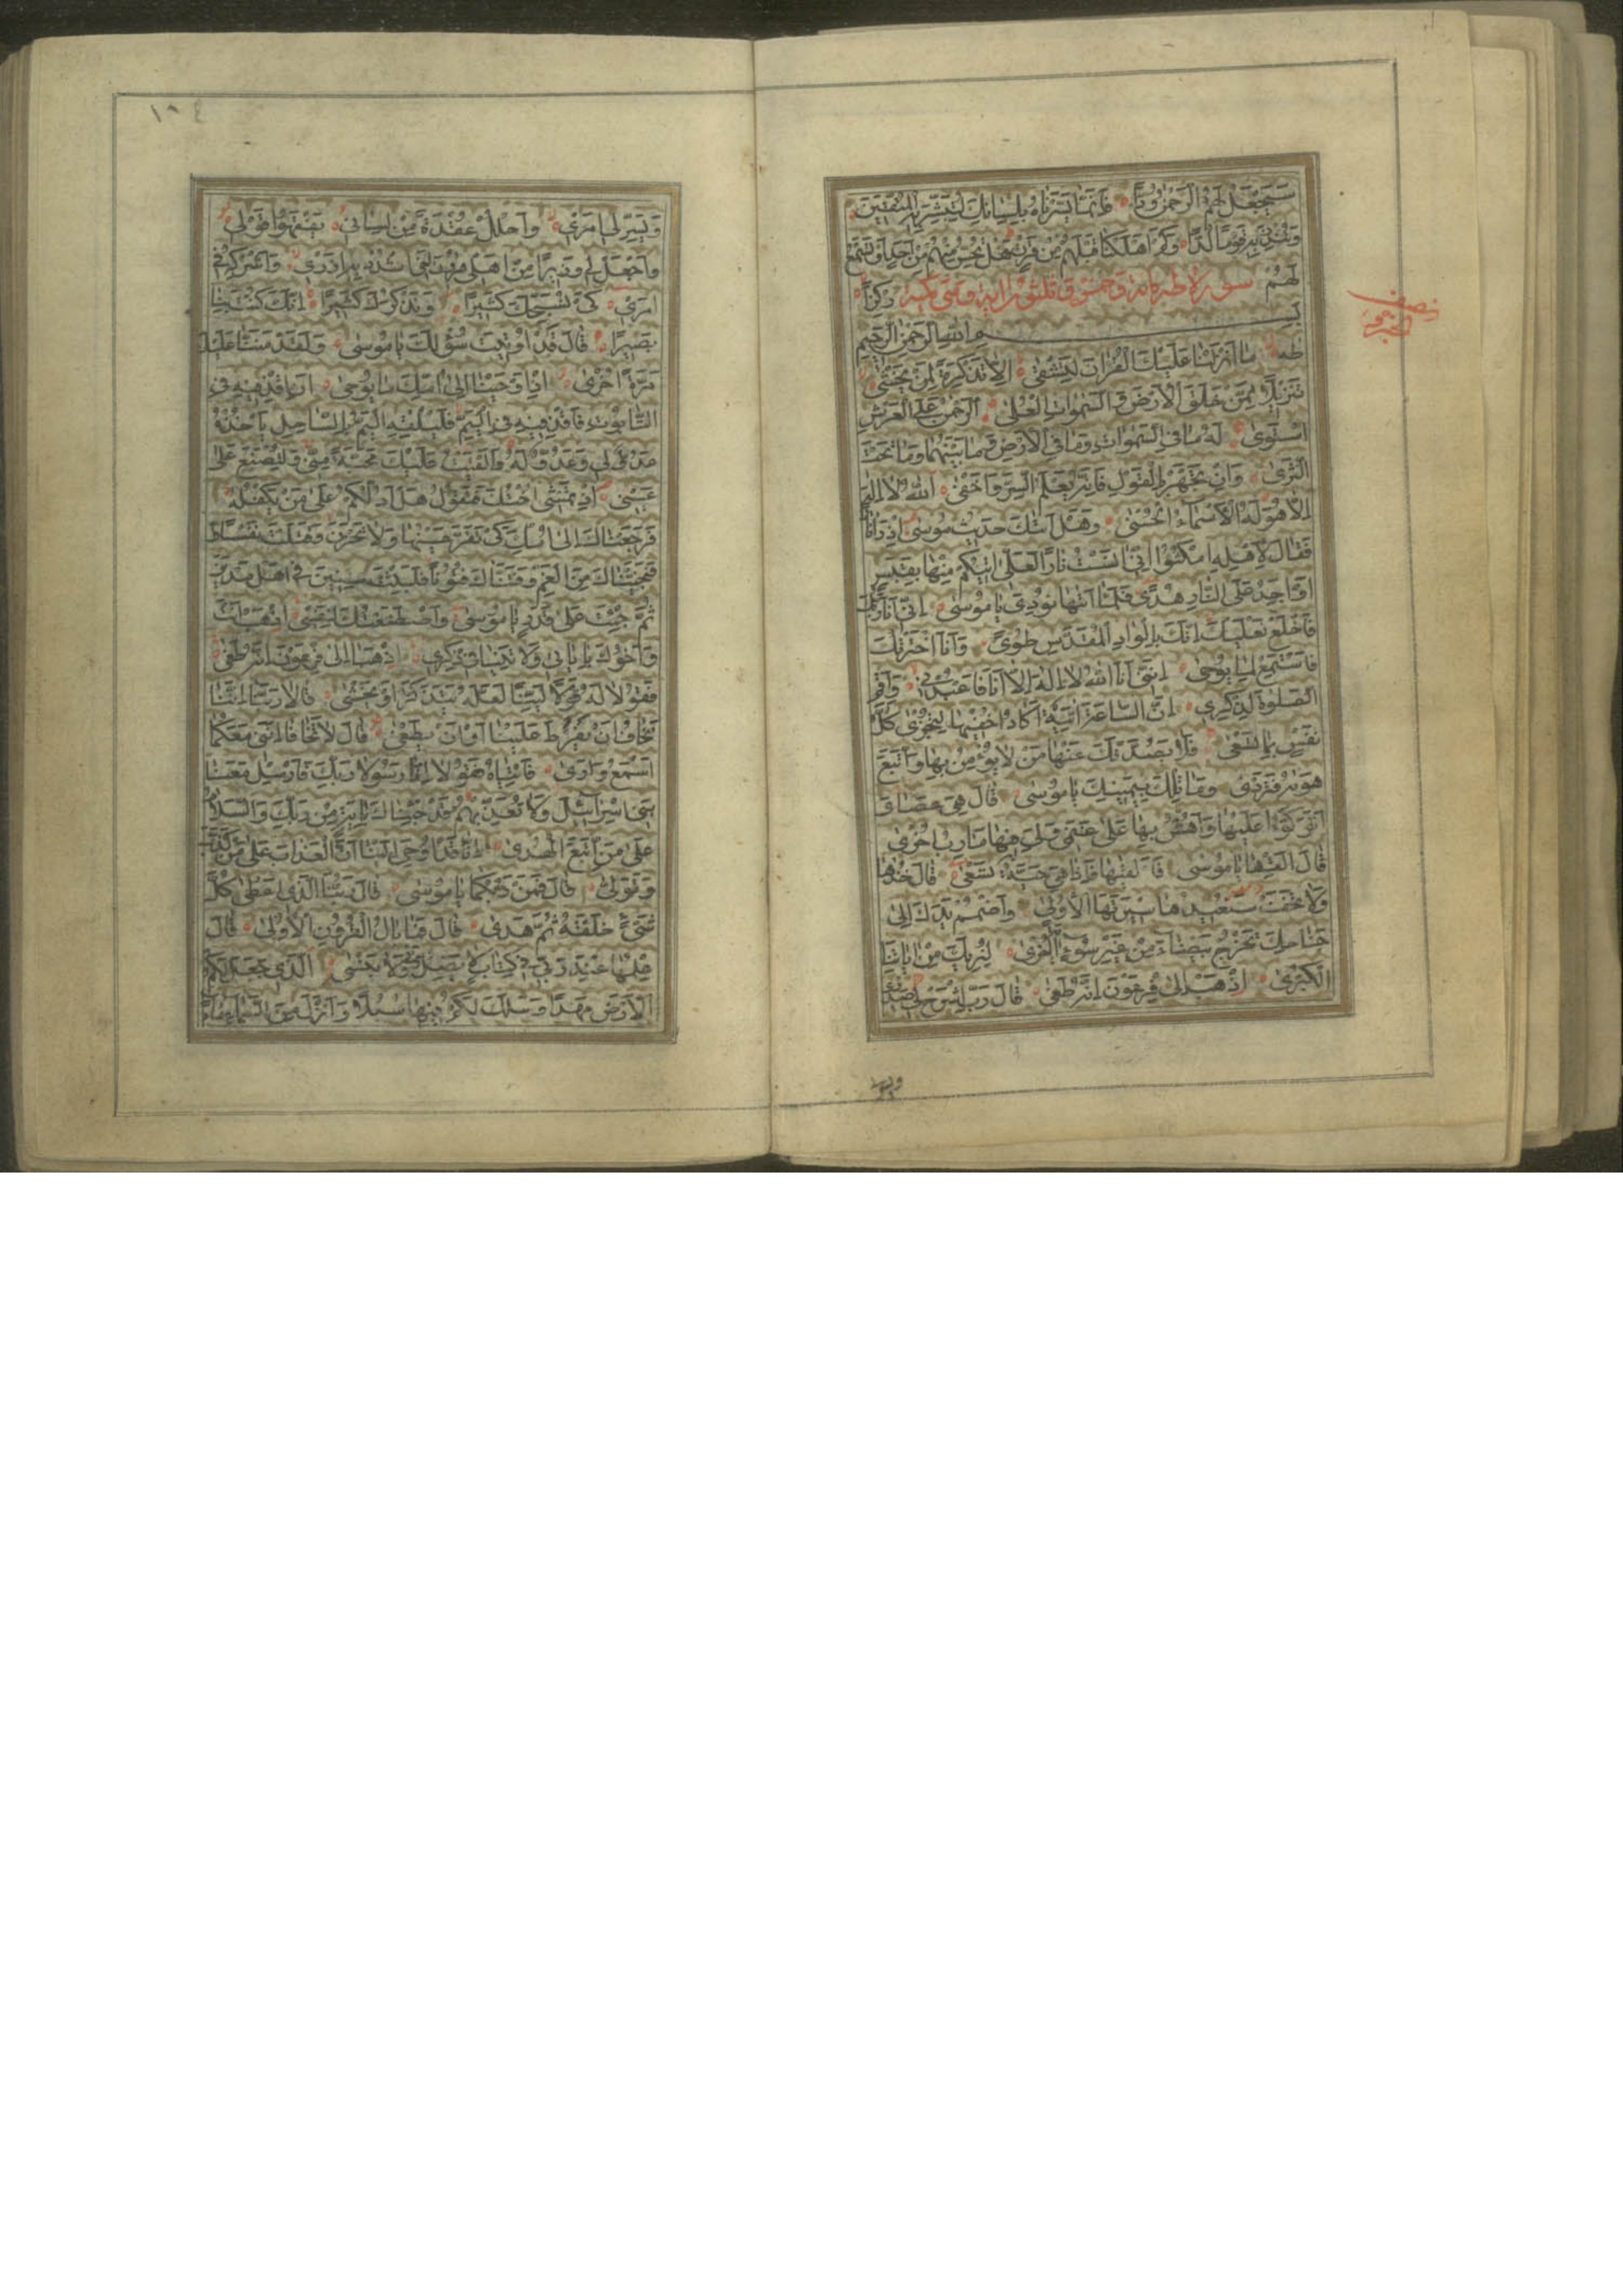 سَيَجْعَلُ لَهُمُ الرَّحْمٰنُ وُدًّا فَاِنَّمَا يَسَّرْنَاهُ بِلِسَانِكَ لِتُبَشِّرَ بِهِ الْمُتَّقِينَ
وَتُنْذِرَ بِهِ قَوْمًا لُدًّا وَكَمْ اَهْلَكْنَا قَبْلَهُمْ مِنْ قَرْنٍ هَلْ تُحِسُّ مِنْهُمْ مِنْ اَحَدٍ اَوْ تَسْمَعُ
لَهُمْ رِكْزًا سورة طه مائة وخمس و ثلثون اية وهى مكية
بِسْمِ اللّٰهِ الرَّحْمٰنِ الرَّحِيمِ
طٰهٰ مَا اَنْزَلْنَا عَلَيْكَ الْقُرْاٰنَ لِتَشْقٰى اِلَّا تَذْكِرَةً لِمَنْ يَخْشٰى
تَنْزِيلًا مِمَّنْ خَلَقَ الْاَرْضَ وَالسَّمٰوَاتِ الْعُلٰى اَلرَّحْمٰنُ عَلَى الْعَرْشِ
اسْتَوٰى لَهُ مَا فِي السَّمٰوَاتِ وَمَا فِي الْاَرْضِ وَمَا بَيْنَهُمَا وَمَا تَحْتَ
الثَّرٰى وَاِنْ تَجْهَرْ بِالْقَوْلِ فَاِنَّهُ يَعْلَمُ السِّرَّ وَاَخْفٰى اَللّٰهُ لَا اِلٰهَ
اِلَّا هُوَ لَهُ الْاَسْمَاءُ الْحُسْنٰى وَهَلْ اَتٰيكَ حَدِيثُ مُوسٰى اِذْ رَاٰ نَارًا
فَقَالَ لِاَهْلِهِ امْكُثُوا اِنِّي اٰنَسْتُ نَارًا لَعَلِّي اٰتِيكُمْ مِنْهَا بِقَبَسٍ
اَوْ اَجِدُ عَلَى النَّارِ هُدًى فَلَمَّا اَتٰيهَا نُودِيَ يَا مُوسٰى اِنِّي اَنَا رَبُّكَ
فَاخْلَعْ نَعْلَيْكَ اِنَّكَ بِالْوَادِ الْمُقَدَّسِ طُوًى وَاَنَا اخْتَرْتُكَ
فَاسْتَمِعْ لِمَا يُوحٰى اِنَّنِي اَنَا اللّٰهُ لَا اِلٰهَ اِلَّا اَنَا فَاعْبُدْنِي وَاَقِمِ
الصَّلٰوةَ لِذِكْرِي اِنَّ السَّاعَةَ اٰتِيَةٌ اَكَادُ اُخْفِيهَا لِتُجْزٰى كُلُّ
نَفْسٍ بِمَا تَسْعٰى فَلَا يَصُدَّنَّكَ عَنْهَا مَنْ لَا يُؤْمِنُ بِهَا وَاتَّبَعَ
هَوٰيهُ فَتَرْدٰى وَمَا تِلْكَ بِيَمِينِكَ يَا مُوسٰى قَالَ هِيَ عَصَايَ
اَتَوَكَّؤُا عَلَيْهَا وَاَهُشُّ بِهَا عَلٰى غَنَمِي وَلِيَ فِيهَا مَاٰرِبُ اُخْرٰى
قَالَ اَلْقِهَا يَا مُوسٰى فَاَلْقٰيهَا فَاِذَا هِيَ حَيَّةٌ تَسْعٰى قَالَ خُذْهَا
وَلَا تَخَفْ سَنُعِيدُهَا سِيرَتَهَا الْاُولٰى وَاضْمُمْ يَدَكَ اِلٰى
جَنَاحِكَ تَخْرُجْ بَيْضَاءَ مِنْ غَيْرِ سُوءٍ اٰيَةً اُخْرٰى لِنُرِيَكَ مِنْ اٰيَاتِنَا
الْكُبْرٰى اِذْهَبْ اِلٰى فِرْعَوْنَ اِنَّهُ طَغٰى قَالَ رَبِّ اشْرَحْ لِي صَدْرِي
ويسر
نصف
١٨٤
وَيَسِّرْ لِي اَمْرِي وَاحْلُلْ عُقْدَةً مِنْ لِسَانِي يَفْقَهُوا قَوْلِي
وَاجْعَلْ لِي وَزِيرًا مِنْ اَهْلِي هٰرُونَ اَخِي اُشْدُدْ بِهِ اَزْرِي وَاَشْرِكْهُ فِي
اَمْرِي كَيْ نُسَبِّحَكَ كَثِيرًا وَنَذْكُرَكَ كَثِيرًا اِنَّكَ كُنْتَ بِنَا
بَصِيرًا قَالَ قَدْ اُوتِيتَ سُؤْلَكَ يَا مُوسٰى وَلَقَدْ مَنَنَّا عَلَيْكَ
مَرَّةً اُخْرٰى اِذْ اَوْحَيْنَا اِلٰى اُمِّكَ مَا يُوحٰى اَنِ اقْذِفِيهِ فِي
التَّابُوتِ فَاقْذِفِيهِ فِي الْيَمِّ فَلْيُلْقِهِ الْيَمُّ بِالسَّاحِلِ يَاْخُذْهُ
عَدُوٌّ لِي وَعَدُوٌّ لَهُ وَاَلْقَيْتُ عَلَيْكَ مَحَبَّةً مِنِّي وَلِتُصْنَعَ عَلٰى
عَيْنِي اِذْ تَمْشِي اُخْتُكَ فَتَقُولُ هَلْ اَدُلُّكُمْ عَلٰى مَنْ يَكْفُلُهُ
فَرَجَعْنَاكَ اِلٰى اُمِّكَ كَيْ تَقَرَّ عَيْنُهَا وَلَا تَحْزَنَ وَقَتَلْتَ نَفْسًا
فَنَجَّيْنَاكَ مِنَ الْغَمِّ وَفَتَنَّاكَ فُتُونًا فَلَبِثْتَ سِنِينَ فِي اَهْلِ مَدْيَنَ
ثُمَّ جِئْتَ عَلٰى قَدَرٍ يَا مُوسٰى وَاصْطَنَعْتُكَ لِنَفْسِي اِذْهَبْ اَنْتَ
وَاَخُوكَ بِاٰيَاتِي وَلَا تَنِيَا فِي ذِكْرِي اِذْهَبَا اِلٰى فِرْعَوْنَ اِنَّهُ طَغٰى
فَقُولَا لَهُ قَوْلًا لَيِّنًا لَعَلَّهُ يَتَذَكَّرُ اَوْ يَخْشٰى قَالَا رَبَّنَا اِنَّنَا
نَخَافُ اَنْ يَفْرُطَ عَلَيْنَا اَوْ اَنْ يَطْغٰى قَالَ لَا تَخَافَا اِنَّنِي مَعَكُمَا
اَسْمَعُ وَاَرٰى فَاْتِيَاهُ فَقُولَا اِنَّا رَسُولَا رَبِّكَ فَاَرْسِلْ مَعَنَا
بَنِي اِسْرَائِيلَ وَلَا تُعَذِّبْهُمْ قَدْ جِئْنَاكَ بِاٰيَةٍ مِنْ رَبِّكَ وَالسَّلَامُ
عَلٰى مَنِ اتَّبَعَ الْهُدٰى اِنَّا قَدْ اُوحِيَ اِلَيْنَا اَنَّ الْعَذَابَ عَلٰى مَنْ كَذَّبَ
وَتَوَلّٰى قَالَ فَمَنْ رَبُّكُمَا يَا مُوسٰى قَالَ رَبُّنَا الَّذِي اَعْطٰى كُلَّ
شَيْءٍ خَلْقَهُ ثُمَّ هَدٰى قَالَ فَمَا بَالُ الْقُرُونِ الْاُولٰى قَالَ
عِلْمُهَا عِنْدَ رَبِّي فِي كِتَابٍ لَا يَضِلُّ رَبِّي وَلَا يَنْسٰى اَلَّذِي جَعَلَ لَكُمُ
الْاَرْضَ مَهْدًا وَسَلَكَ لَكُمْ فِيهَا سُبُلًا وَاَنْزَلَ مِنَ السَّمَاءِ مَاءً